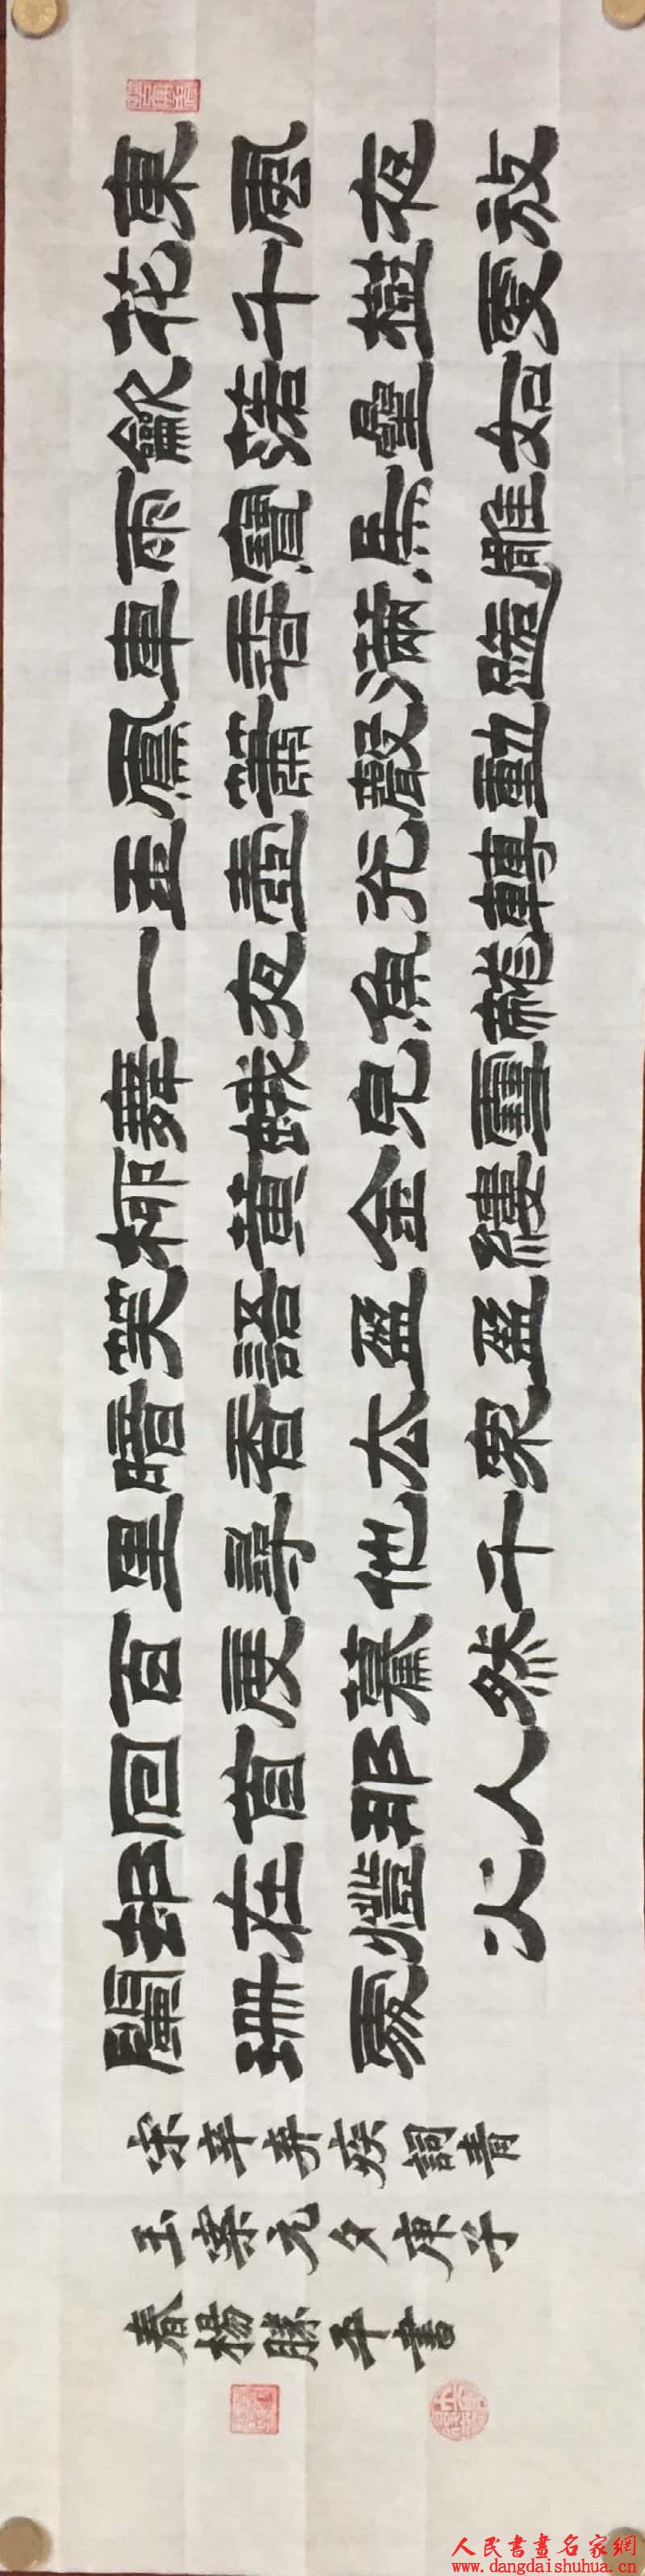 東風夜放
花千樹更
龡落星如
雨寶馬雕
車香滿路
鳳簫聲動
玉壺光轉
一夜魚龍
舞蛾兒雪
柳黃金縷
笑語盈盈
暗香去衆
里尋他千
百度驀然
回首那人
却在燈火
闌珊處
宋辛弃疾詞青
玉案元夕庚子
春楊勝平書
人民書畫名家網
www.dangdaishuhua.cn